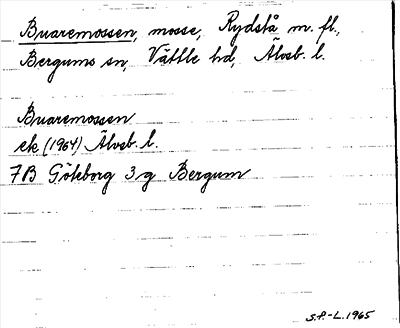 Buaremossen, mosse, Rydstå m. fl.,
Bergums sn, Vättle hd, Älvsb. l.
Buaremossen
ek (1964) Älvsb. l.
7B Göteborg 3g Bergum
S.P.-L. 1965